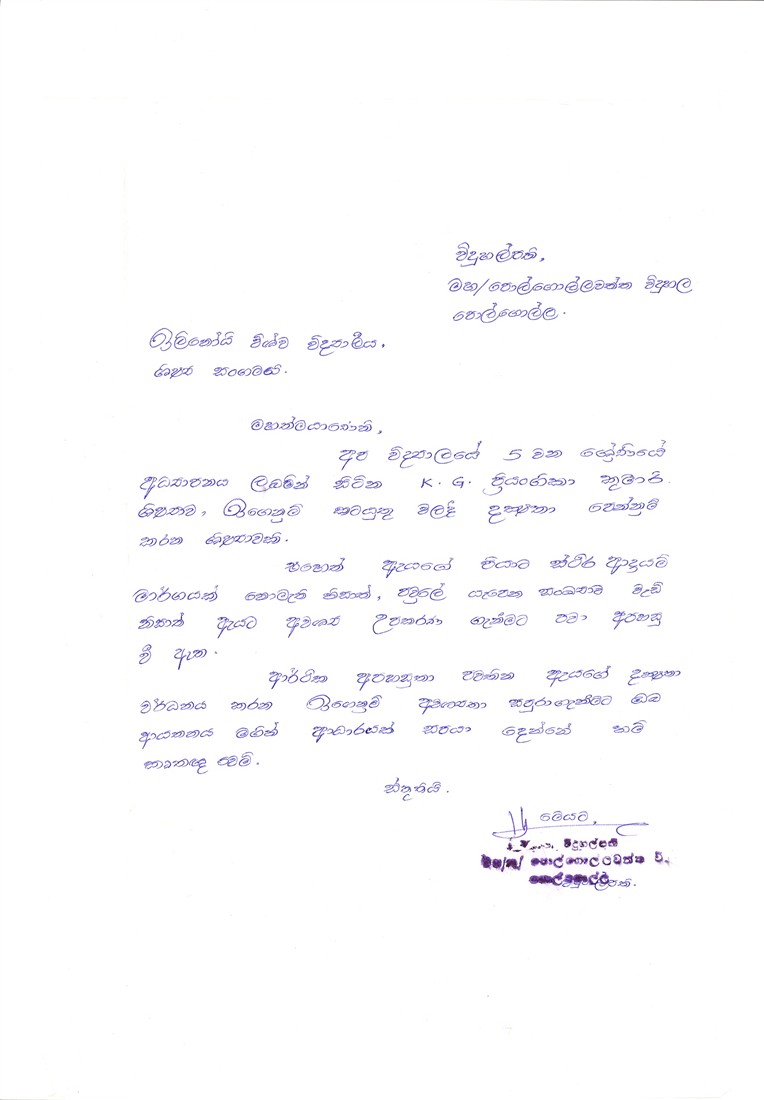 විදුහල්පති,
මහ/පොල්ගොල්ලවත්ත විදුහල
පොල්ගොල්ල.
ඉලිනෝයි විශ්ව විද්‍යාලීය,
ශිෂ්‍ය සංගමය.
මහත්මයාණෙනි,
අප විද්‍යාලයේ 5 වන ශ්‍රේණියේ
අධ්‍යාපනය ලබමින් සිටින K. G. ප්‍රියංගිකා කුමාරි
ශිෂ්‍යාව, ඉගෙනුම් කටයුතු වලදී දක්ෂතා පෙන්නුම්
කරන ශිෂ්‍යාවකි.
එහෙත් ඇයගේ පියාට ස්ථිර ආදායම්
මාර්ගයක් නොමැති නිසාත්, පවුලේ යැපෙන සංඛ්‍යාව වැඩි
නිසාත් ඇයට අවශ්‍ය උපකරණ ගැනීමට පවා අපහසු
වී ඇත.
ආර්ථික අපහසුතා පවතින ඇයගේ දක්ෂතා
වර්ධනය කරන ඉගෙනුම් අවශ්‍යතා සපුරාගැනීමට ඔබ
ආයතනය මගින් ආධාරයක් සපයා දෙන්නේ නම්
කෘතඥ වෙමි.
ස්තූතියි.
මෙයට,
විදුහල්පති
පොල්ගොල්ලවත්ත වි.
පොල්ගොල්ල